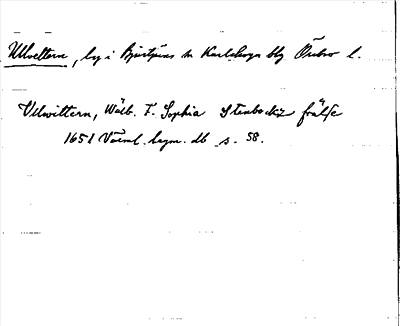 Ullvettern, by i Bjurtjärns sn Karlskoga bg Örebro l.
Ulwittern, Wälb. F. Sophia Stenbockz frälse
1651 Värml. legm. db s. 58.